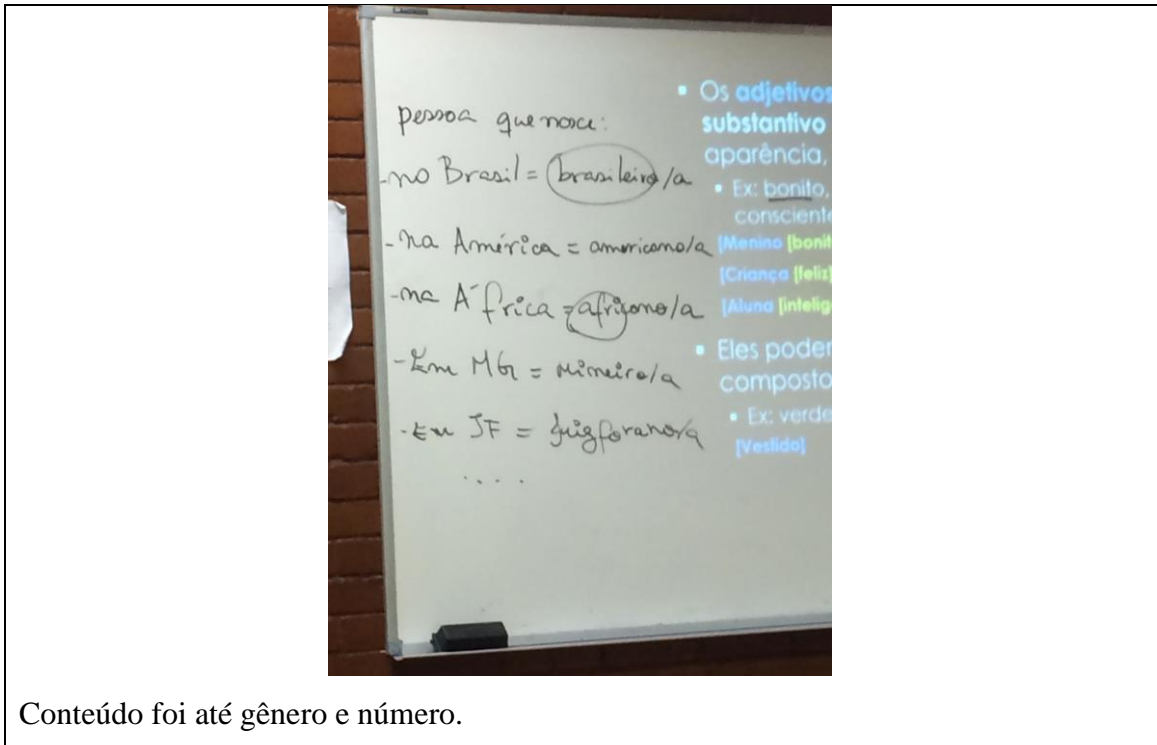 pessoa que nasce:
-no Brasil = brasileiro/a
-na América = americano/a
-na África = africano/a
-Em MG = mineiro/a
-Em JF = juizforano/a
....
▪ Os adjetivos
substantivo
aparência,
▪ Ex: bonito,
consciente
[Menino [bonit
[Criança [feliz]
[Aluna [intelig
▪ Eles poder
composto
▪ Ex: verde
[Vestido]
Conteúdo foi até gênero e número.